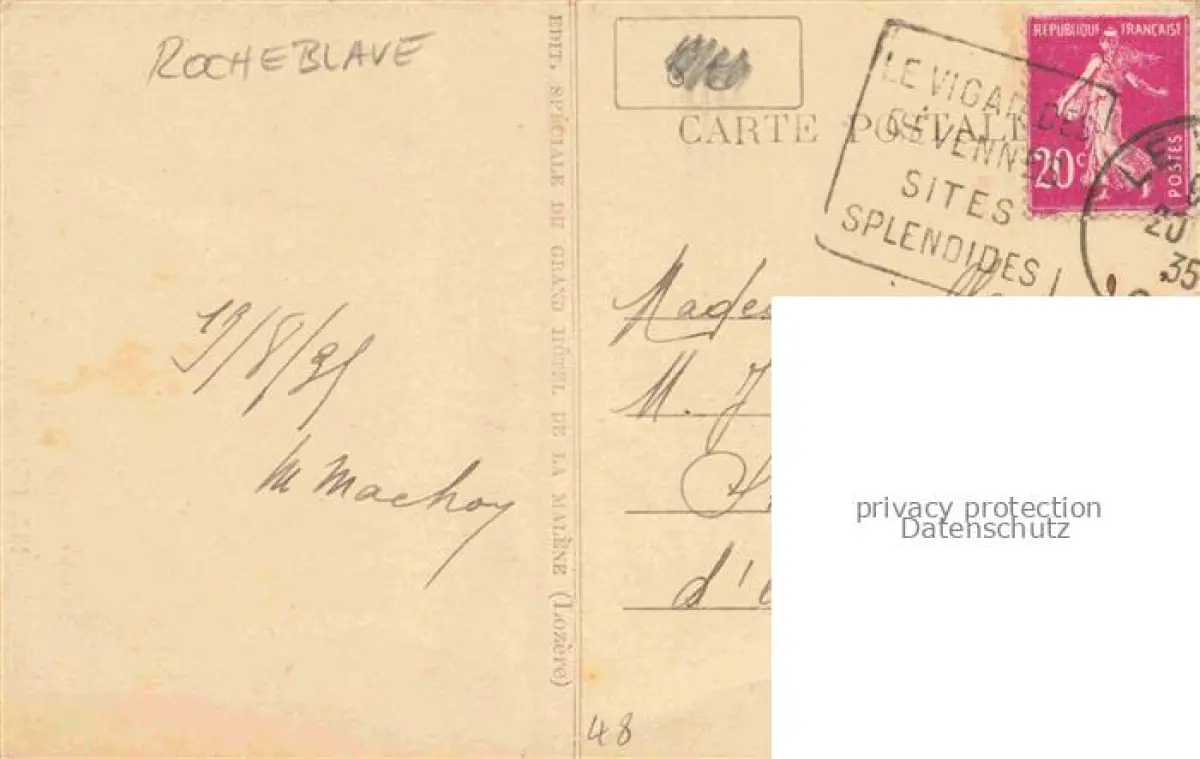 ROCHEBLAVE
19/8/35
M Machoy
EDIT. SPÉCIALE DU GRAND HÔTEL DE LA MALÈNE (Lozère)
CARTE POSTALE
LE VIGAN DES
CÉVENNES
SITES
SPLENDIDES !
REPUBLIQUE FRANÇAISE
20c
POSTES
LE
20
35
M. J
d'
48
privacy protection
Datenschutz